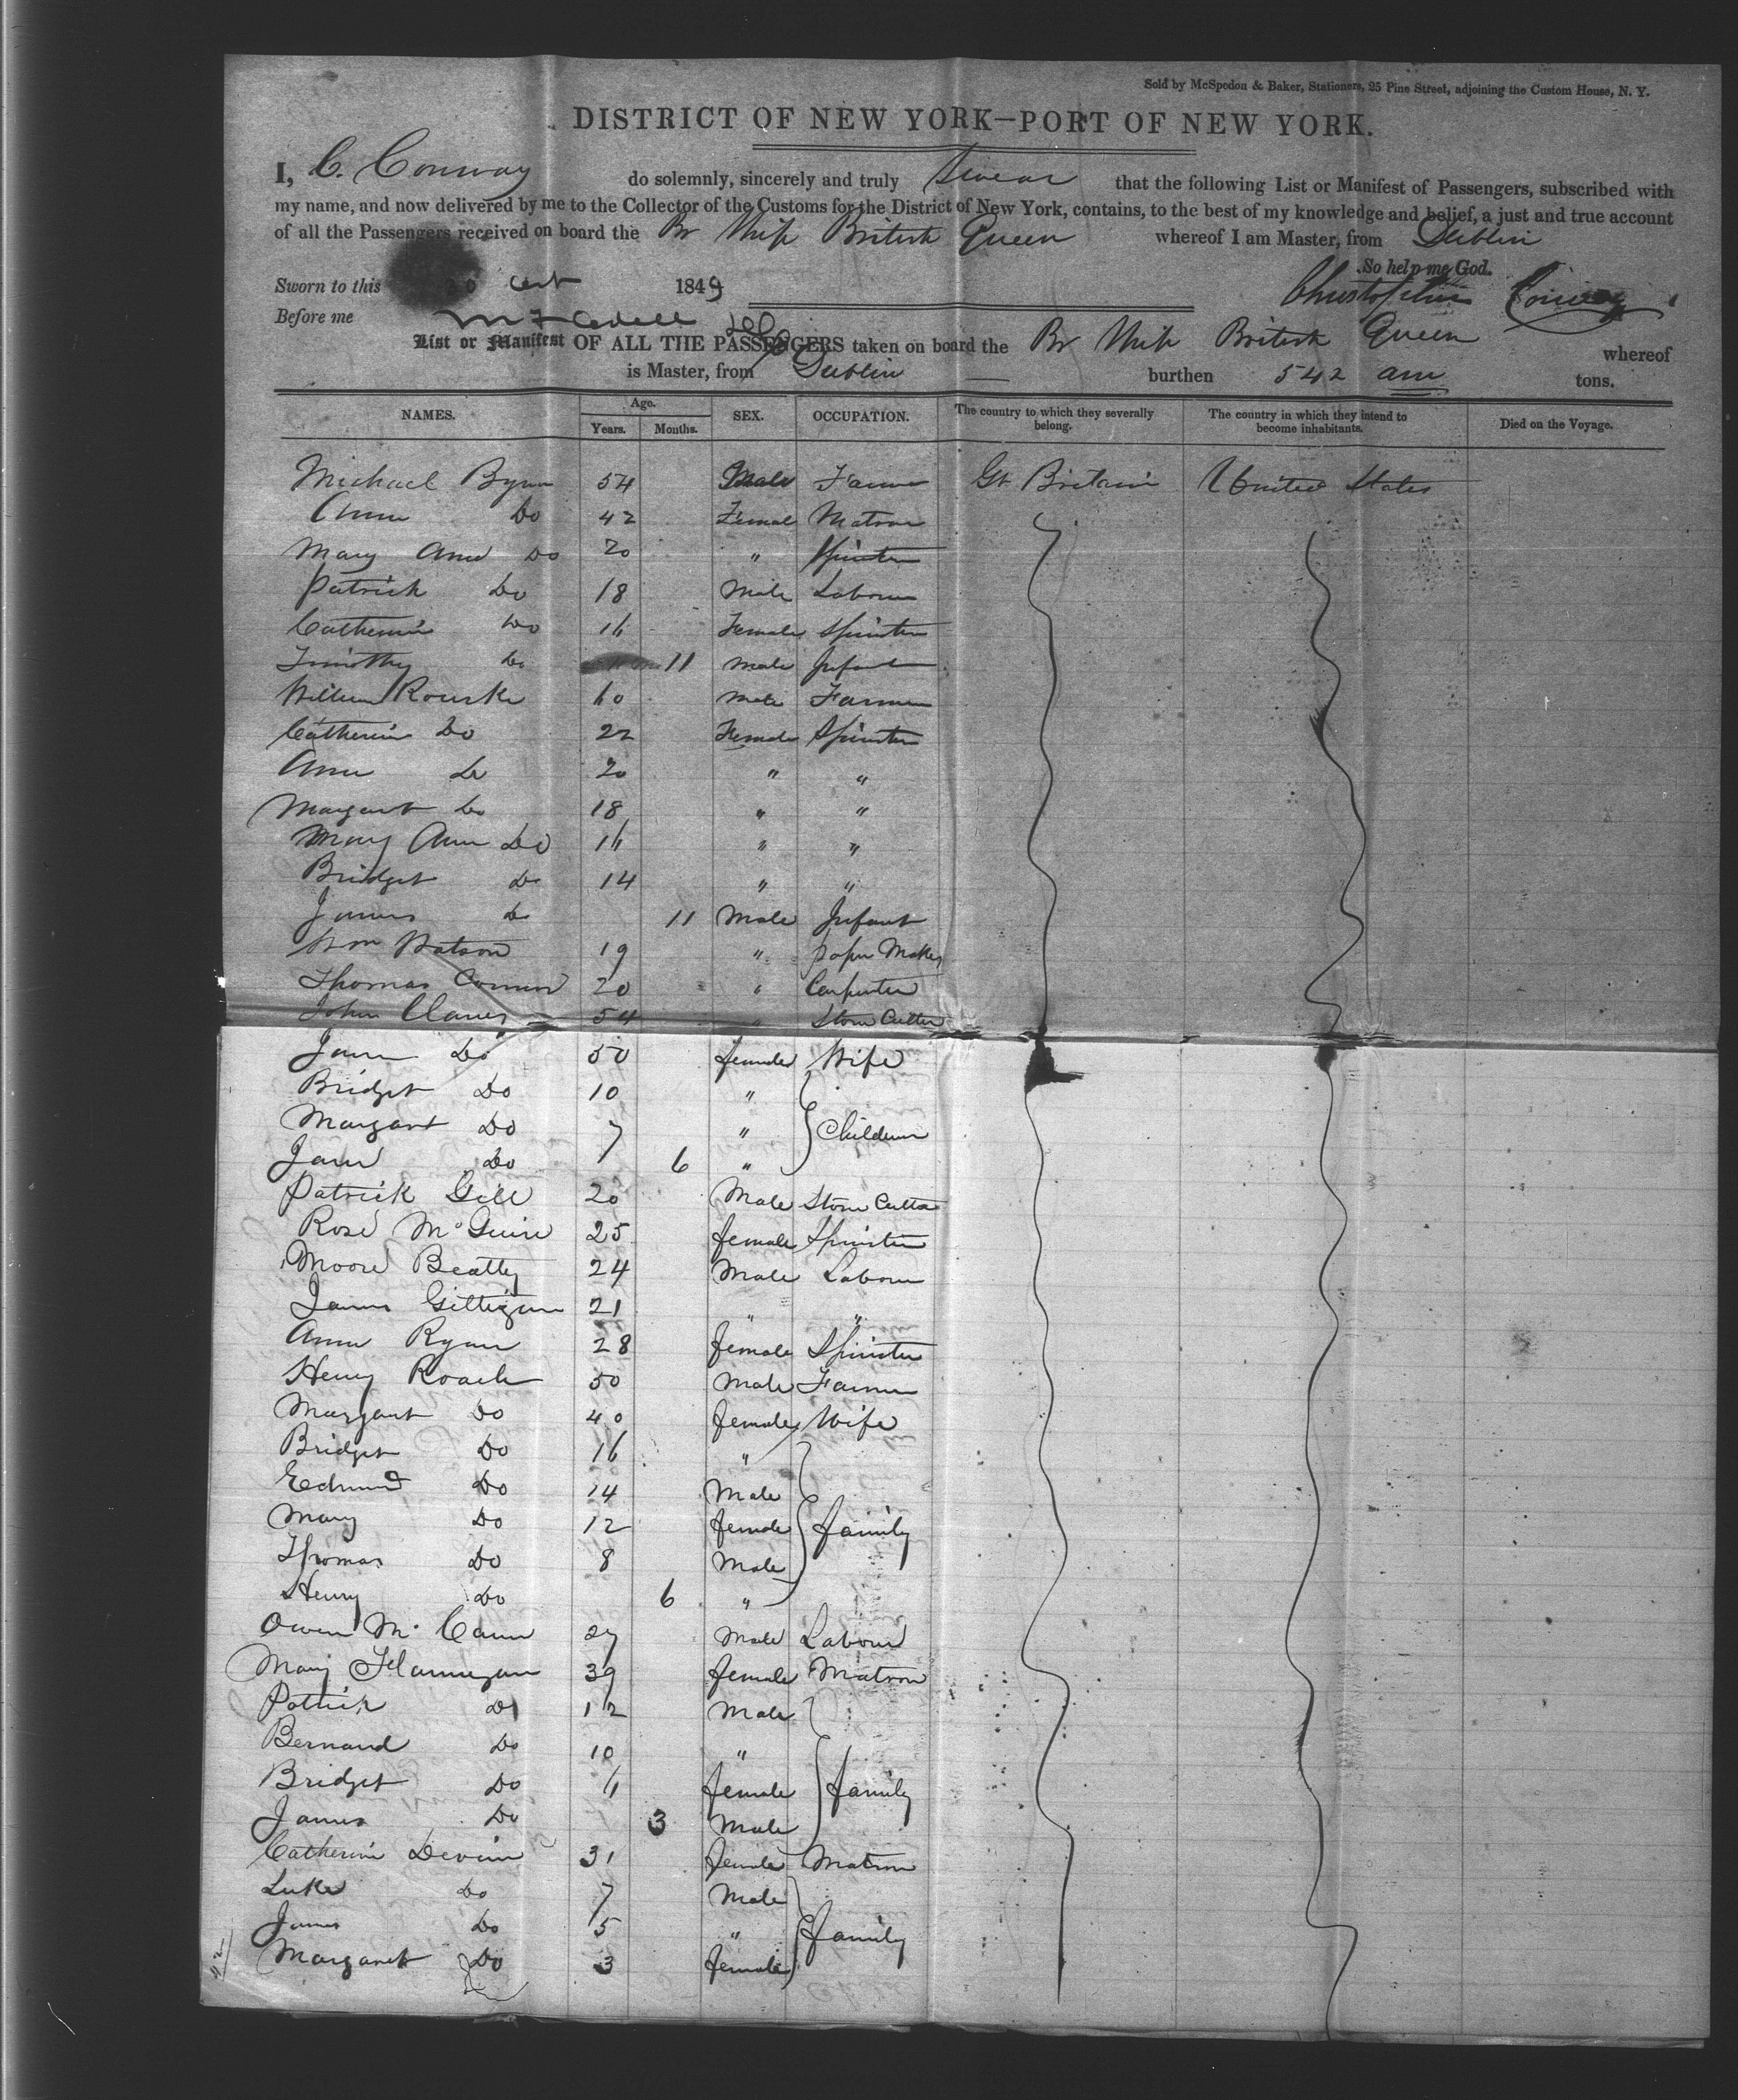 Sold by McSpedon & Baker, Stationers, 25 Pine Street, adjoining the Custom House, N. Y.
DISTRICT OF NEW YORK—PORT OF NEW YORK.
I, C. Conway do solemnly, sincerely and truly swear that the following List or Manifest of Passengers, subscribed with
my name, and now delivered by me to the Collector of the Customs for the District of New York, contains, to the best of my knowledge and belief, a just and true account
of all the Passengers received on board the Br Ship British Queen whereof I am Master, from Dublin
So help me God.
Sworn to this 1849 Christopher Conway
Before me
List or Manifest OF ALL THE PASSENGERS taken on board the Br Ship British Queen whereof
is Master, from Dublin burthen 542 tons.
NAMES. Age. Years. Months. SEX. OCCUPATION. The country to which they severally belong. The country in which they intend to become inhabitants. Died on the Voyage.
Michael Byrn 54 Male Farmer Gt Britain United States
Ann Do 42 Female Matron
Mary Ann Do 20 " Spinster
Patrick Do 18 Male Labourer
Catherine Do 16 Female Spinster
Timothy Do 11 Male Infant
William Rourke 60 Male Farmer
Catherine Do 22 Female Spinster
Ann Do 20 " "
Margaret Do 18 " "
Mary Ann Do 16 " "
Bridget Do 14 " "
James Do 11 Male Infant
Wm Watson 19 " Paper Maker
Thomas Connor 20 " Carpenter
John 54 " Stone Cutter
Jane Do 50 female Wife
Bridget Do 10 "
Margaret Do 7 " Children
Jane Do 6 "
Patrick Gill 20 Male Stone Cutter
Rose McGuire 25 female Spinster
Moore Beatty 24 Male Labourer
James Gilligan 21 " "
Ann Ryan 28 female Spinster
Henry Roach 50 Male Farmer
Margaret Do 40 female Wife
Bridget Do 16 "
Edmund Do 14 Male
Mary Do 12 female family
Thomas Do 8 Male
Henry Do 6 "
Owen McCann 27 Male Labourer
Mary Flannegan 39 female Matron
Patrick Do 12 Male
Bernard Do 10 "
Bridget Do 6 female family
James Do 3 Male
Catherine Devine 31 female Matron
Luke Do 7 Male
James Do 5 " family
Margaret Do 3 female